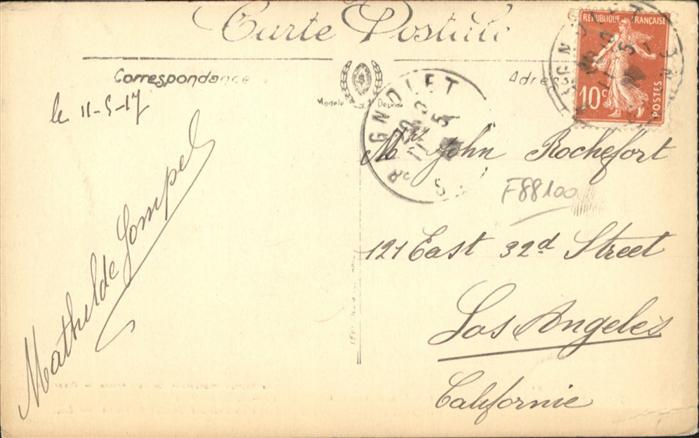 Carte Postale
Correspondance
Modèle Déposé
le 11-5-17
BAGNOLET
RÉPUBLIQUE FRANÇAISE
10c
POSTES
Mr John Rochefort
F88100
121 East 32d Street
Los Angeles
Californie
Mathilde Gompel